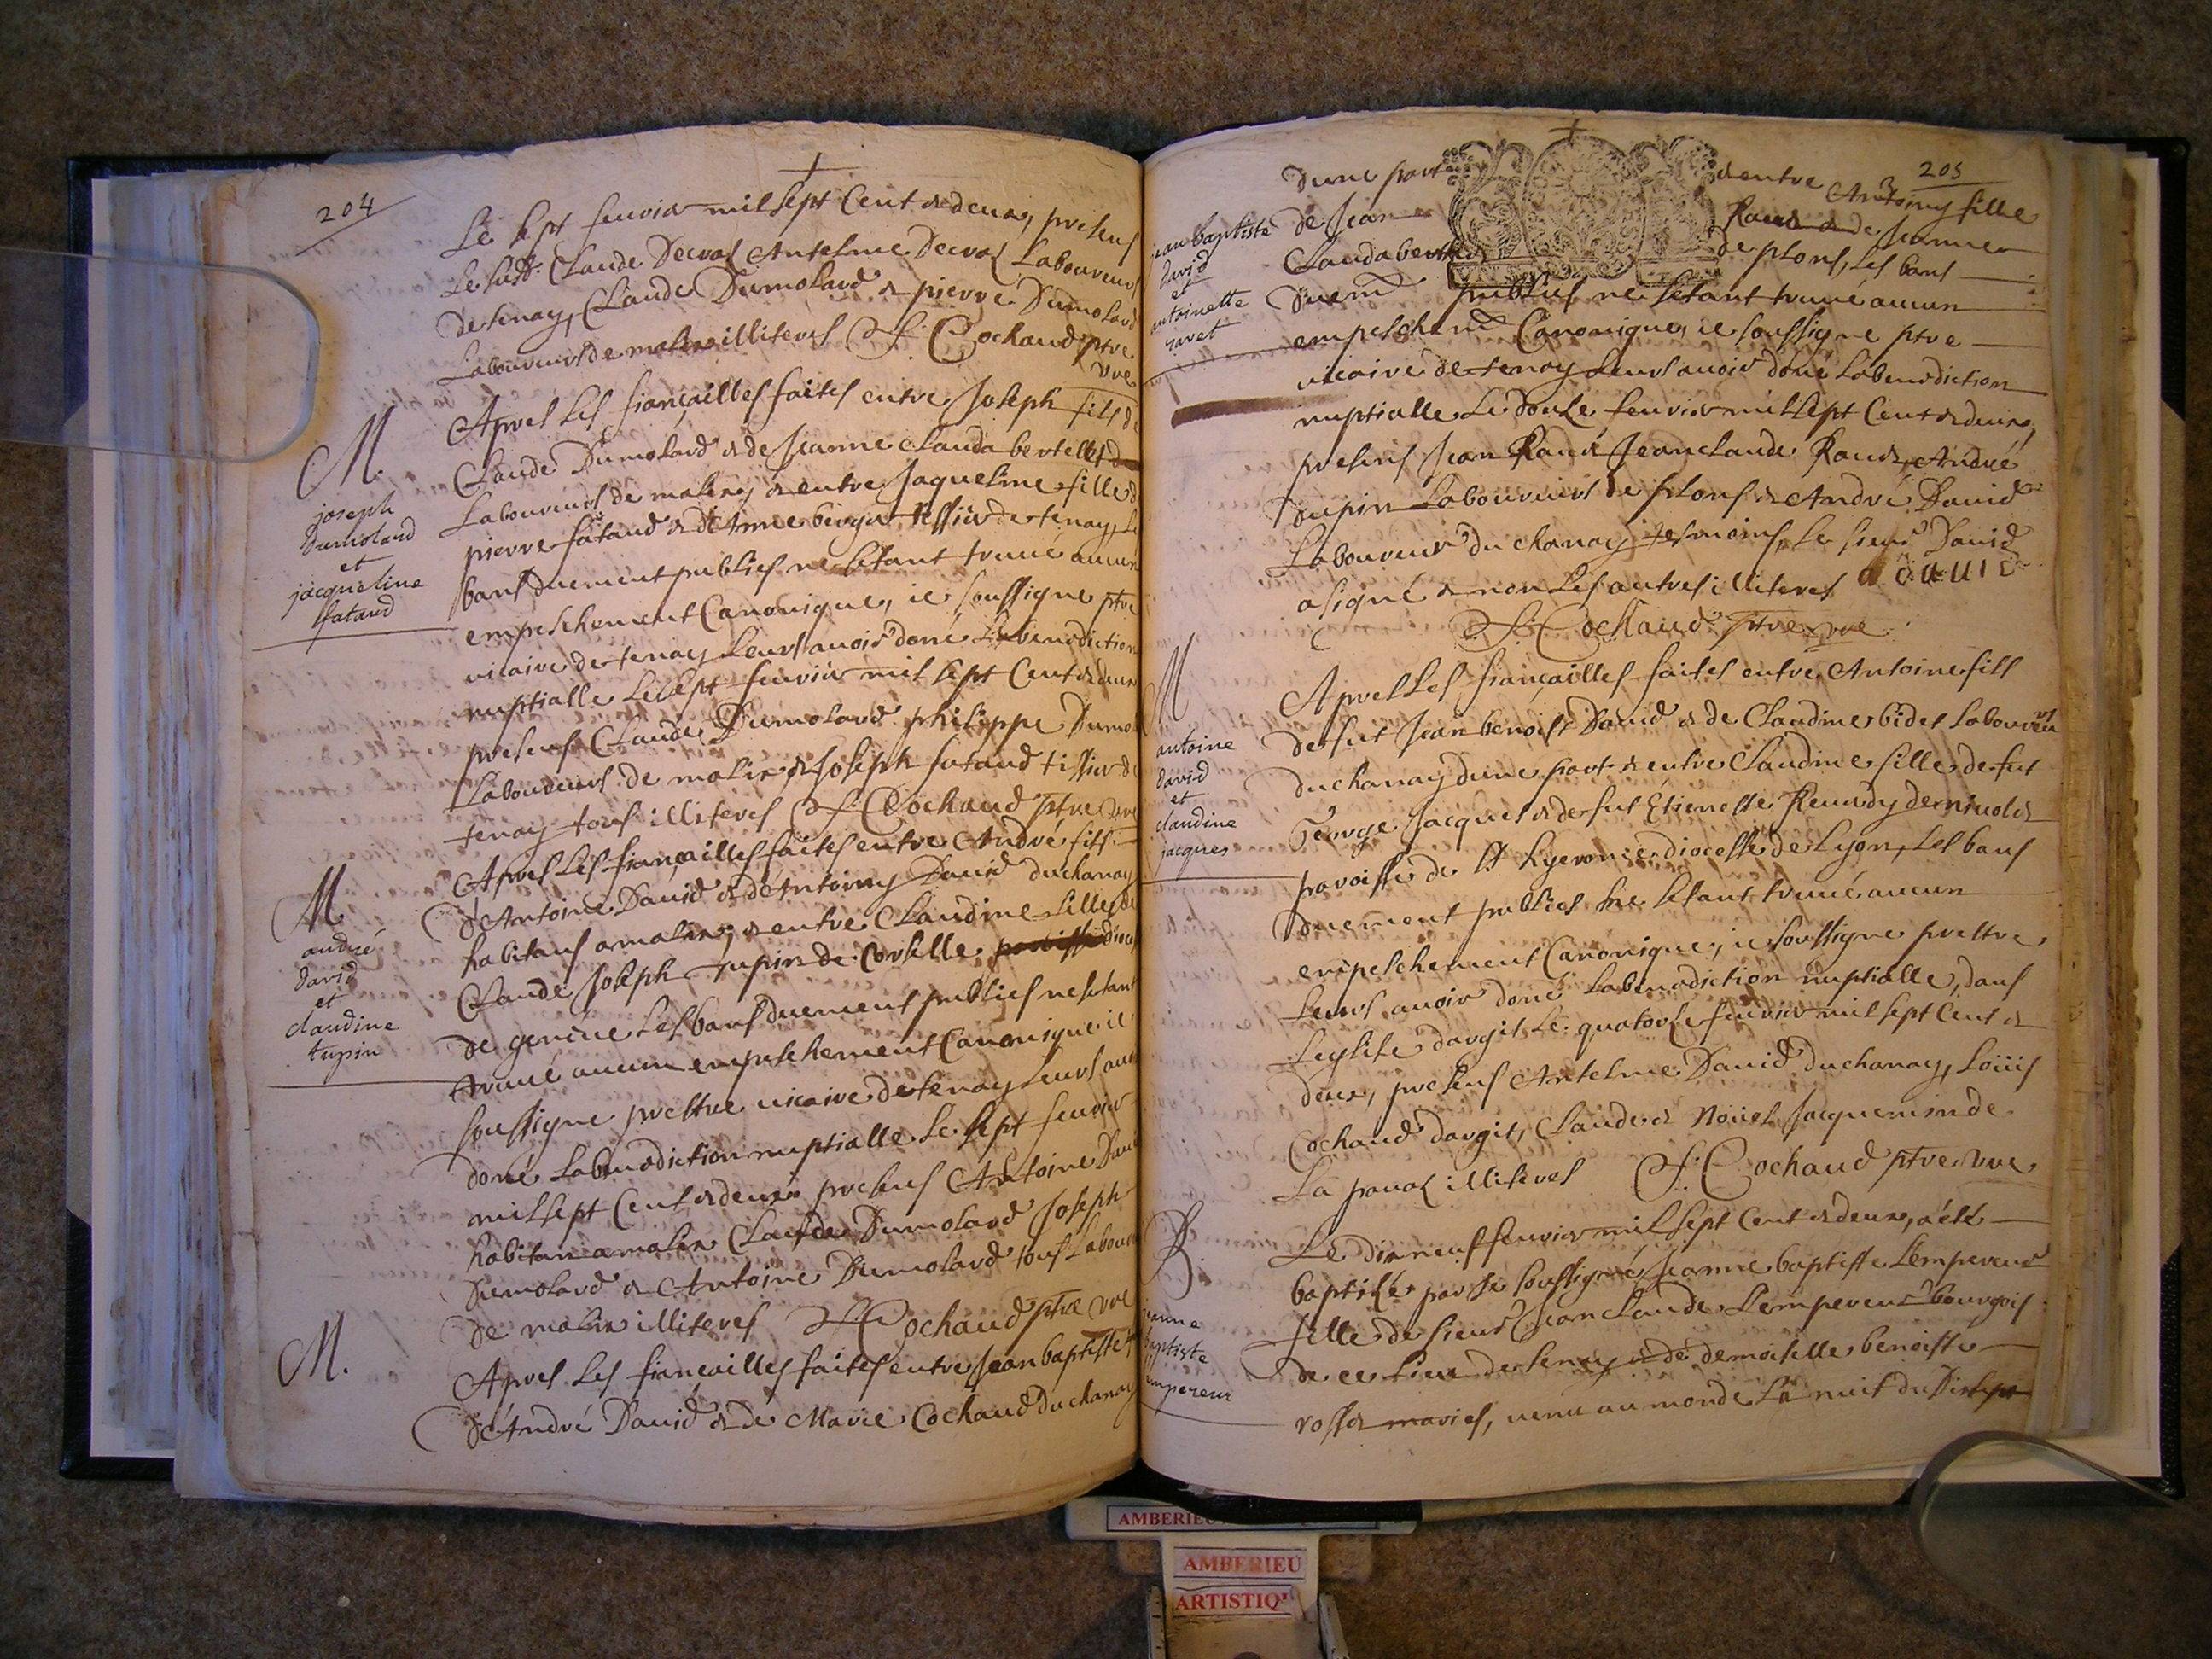 204
Le sept feuvier mil sept Cent & deux, presens
Le susd: Claude Decroz Antelme Decroz Laboureurs
de tenay, Claude Dumolard & pierre Dumolard
Laboureurs de malix illiteres J. Cochaud ptre
vre
M.
joseph
Dumolard
et
jacqueline
fataud
Apres Les fiançailles faites entre Joseph fils de
Claude Dumolard & de Jeanne Clauda bertellet
Laboureurs de malix, & entre Jaquelme fille de
pierre fataud & d'Anne berger tissier de tenay, Le
bans duement publies ne sétant trouué aucun
empeschement Canonique, ie soussigne ptre
vicaire de tenay Leurs auoir doné La benediction
nuptialle Le sept feuvier mil sept Cent & deux
presens Claude Dumolard philippe Dumo
Laboureurs de malix & Joseph fataud tissier de
tenay tous illiteres J. Cochaud ptre vre
M.
andré
david
et
claudine
tupin
Apres Les fiançailles faites entre André fils
d'Antoine Dauid & d'Antoiny Dauid du chanay
habitans a malix, & entre Claudine fille de
Claude Joseph tupin de Corselle dioces
de geneue Les bans duement publies ne setant
trouué aucun empeschement Canonique ie
soussigne prestre vicaire de tenay Leurs auoi
doné La benediction nuptialle Le sept feuvier
mil sept Cent & deux presens Antoine Dauid
habitan a malix Claude Dumolard Joseph
Dumolard & Antoine Dumolard tous Labour
de malix illiteres J. Cochaud ptre vre
M.
Apres Les fiançailles faites entre Jean baptiste f
d'André Dauid & de Marie Cochaud du chanay
205
jean baptiste
david
et
antoinette
ravet
dune part & entre Antoiny fille
de Jean Raud & de Jeanne
Clauda berthet de plons, Les bans
duemt publies ne setant trouué aucun
empeschemt Canonique, ie soussigne ptre
vicaire de tenay Leurs auoir doné La benediction
nuptialle Le douze feuvier mil sept Cent & deux,
presens Jean Raud & Jean claude Raud, André
tupin Laboureurs de plons & André Dauid
Laboureur du chanay tesmoins, Le sieur Dauid
a signé & non Les autres illiteres a dauid
J. Cochaud ptre vre
M
antoine
david
et
claudine
jacques
Apres Les fiançailles faites entre Antoine fils
de fut Jean benoist Dauid & de Claudine bidet Laboureurs
du chanay dune part & entre Claudine fille de fut
George Jacques & de fut Etienette Reuerdy de niuolet
paroisse de St hyeronie diocesse de Lyon, Les bans
duement publies ne setant trouué aucun
empeschement Canonique, ie soussigne prestre
Leurs auoir doné La benediction nuptialle, dans
Leglise dargit Le quatorze feuvier mil sept Cent &
deux, presens Antelme Dauid du chanay, Loüis
Cochaud dargit, Claude & Noüel Jacquemin de
La paroz illiteres J. Cochaud ptre vre
B.
jeanne
baptiste
lempereur
Le dixneuf feuvier mil sept Cent & deux, a été
baptisée par Je soussigné Jeanne baptiste Lempereur
fille de sieur Jean Claude Lempereur bourgois
de ce Lieu de tenay & de demoiselle benoiste
rosset maries, venu au monde La nuit du Dixsept
AMBERIEU
AMBERIEU
ARTISTIQ